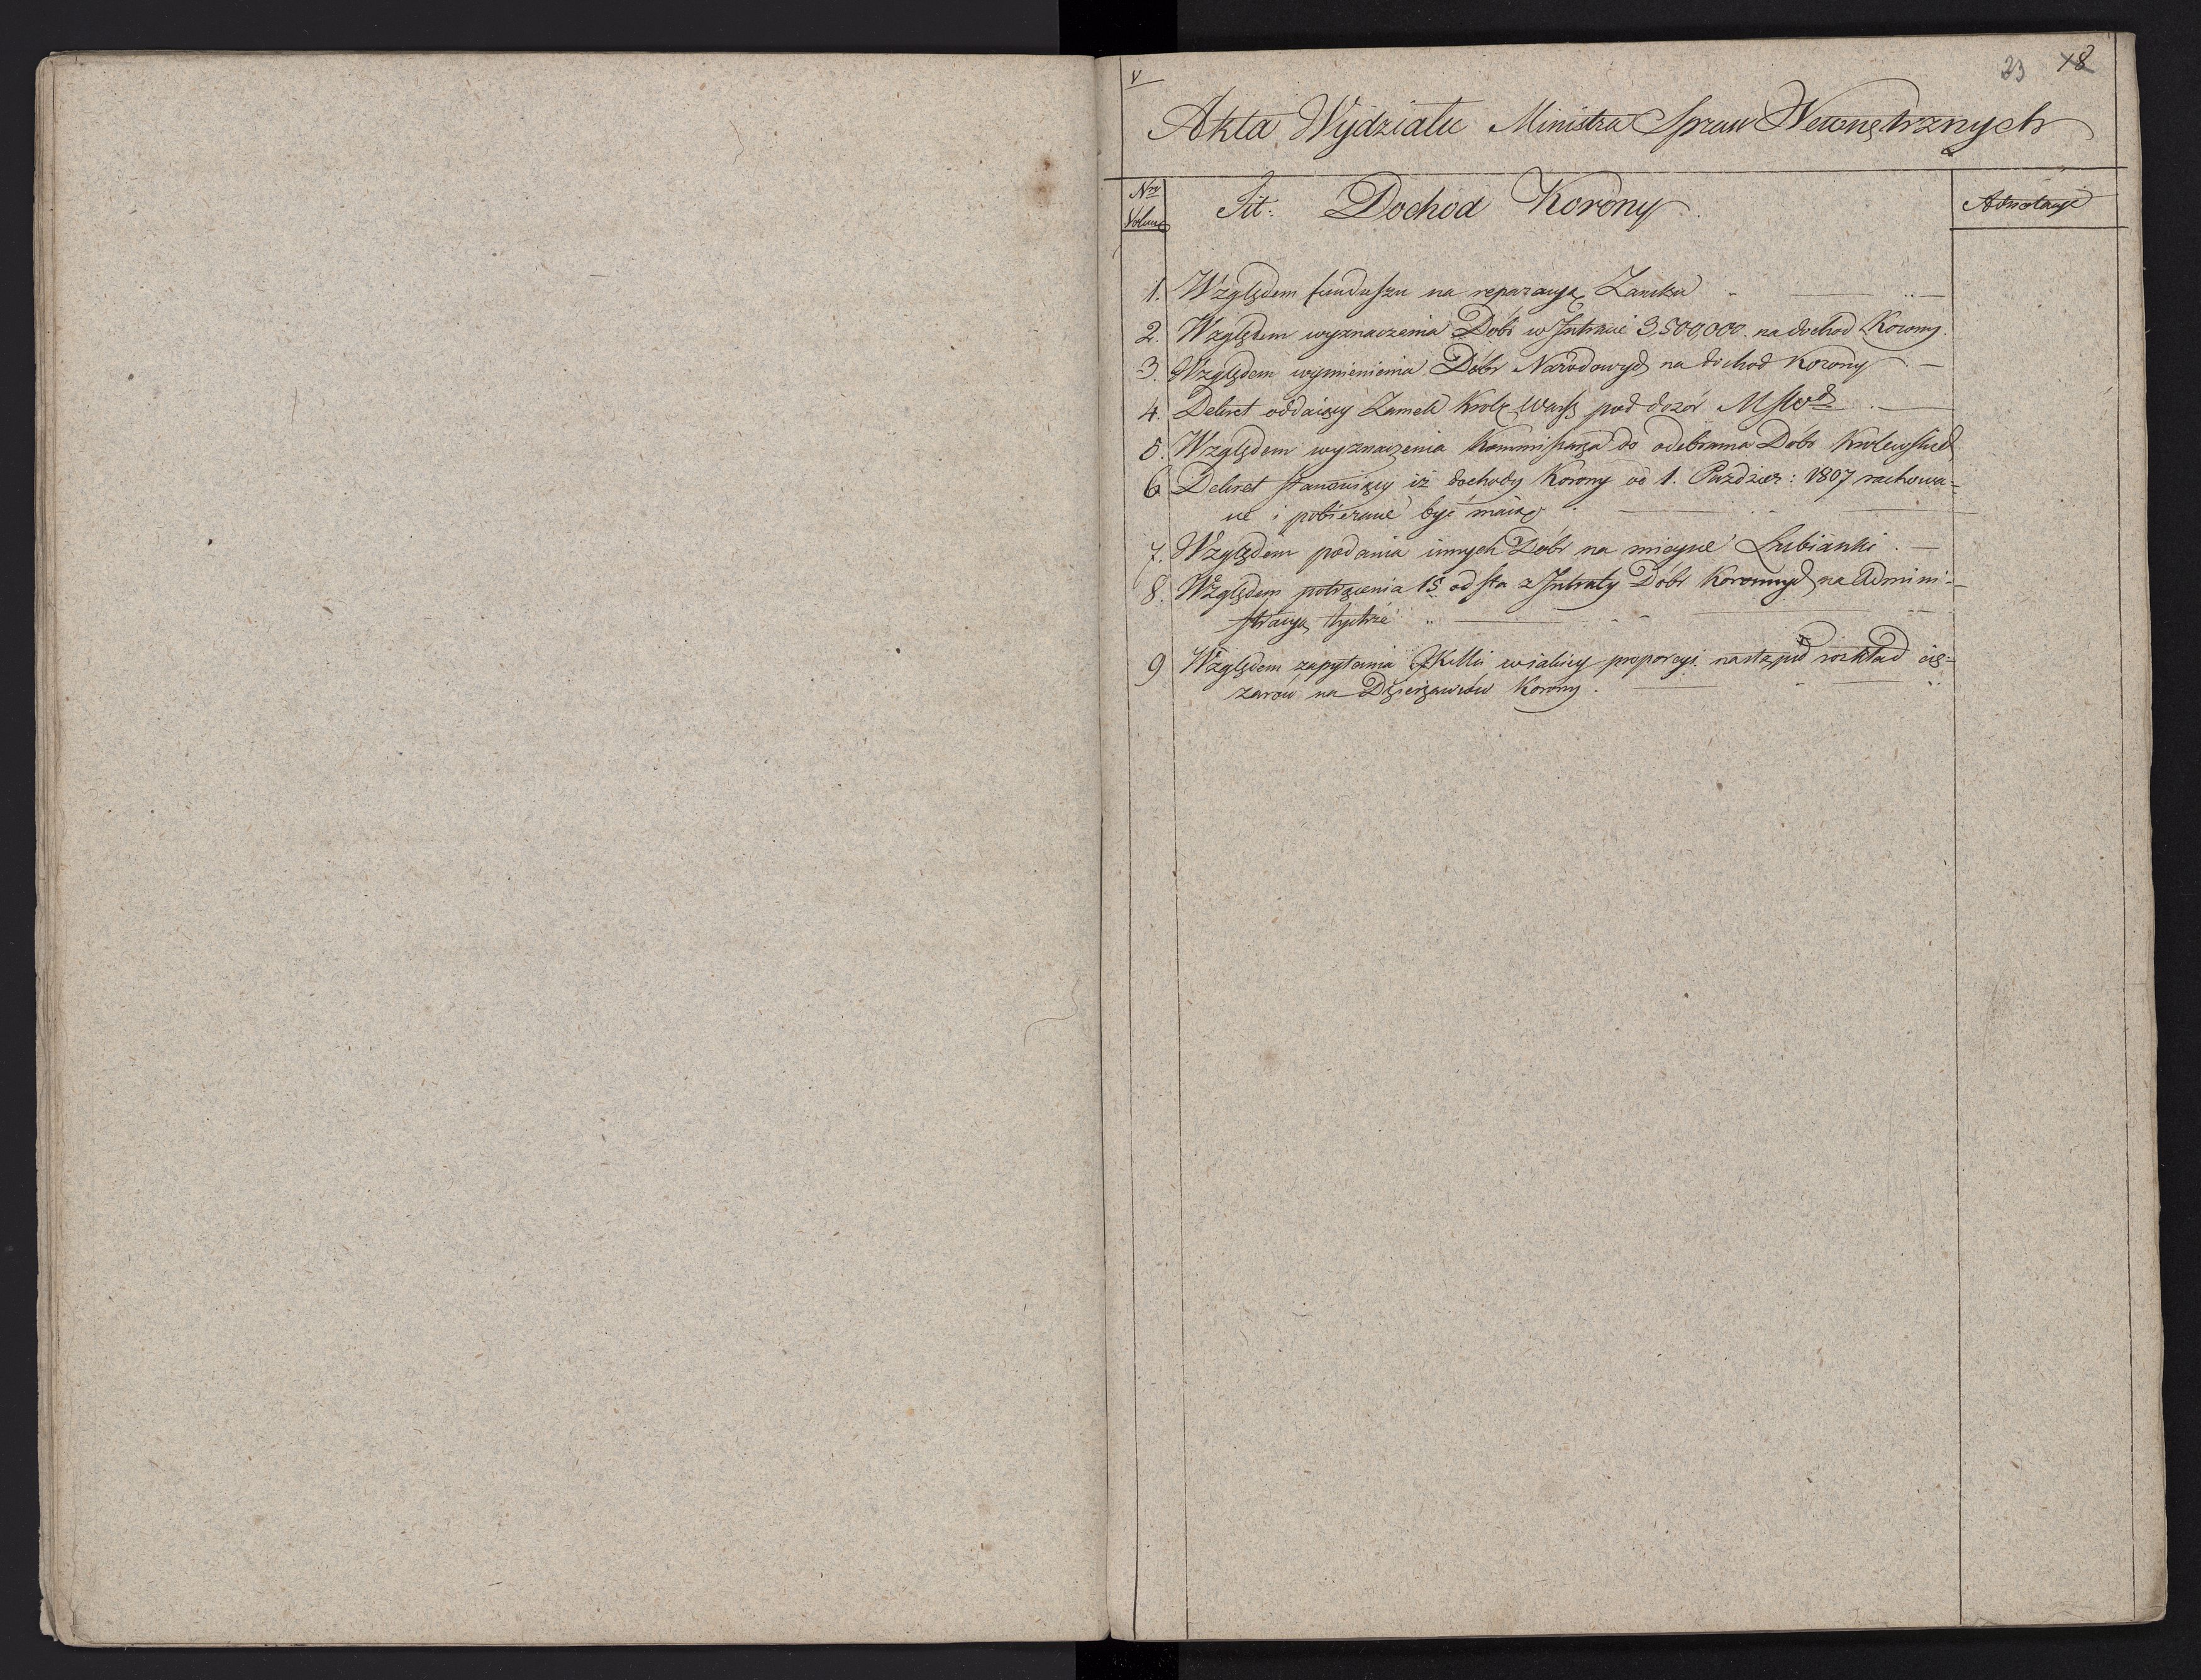 23 18
V
Akta Wydziału Ministra Spraw Wewnętrznych
Nro Volum
Tit: Dochod Korony
Adnotacje
1. Względem funduszu na reparacyą Zamku
2. Względem wyznaczenia Dóbr w Intracie 3,500,000. na dochod Korony.
3. Względem wymienienia Dóbr Narodowych na dochod Korony
4. Dekret oddaiący Zamek Krolę Warsz pod dozór MSWd
5. Względem wyznaczenia Kommissarza do odebrania Dóbr Królewskich
6 Dekret stanowiący iż dochody Korony od 1. Paździer: 1807 rachowa=
ne i pobierane być maią
7. Względem podania innych Dóbr na mieysce Lubianki.
8. Względem potrącenia 15 od sta z Intraty Dóbr Koronnych na Admini=
stracyą tychże
9 Względem zapytania w iakiey proporcyi nastąpić rozkład cię=
żarów na Dzierżawców Korony.